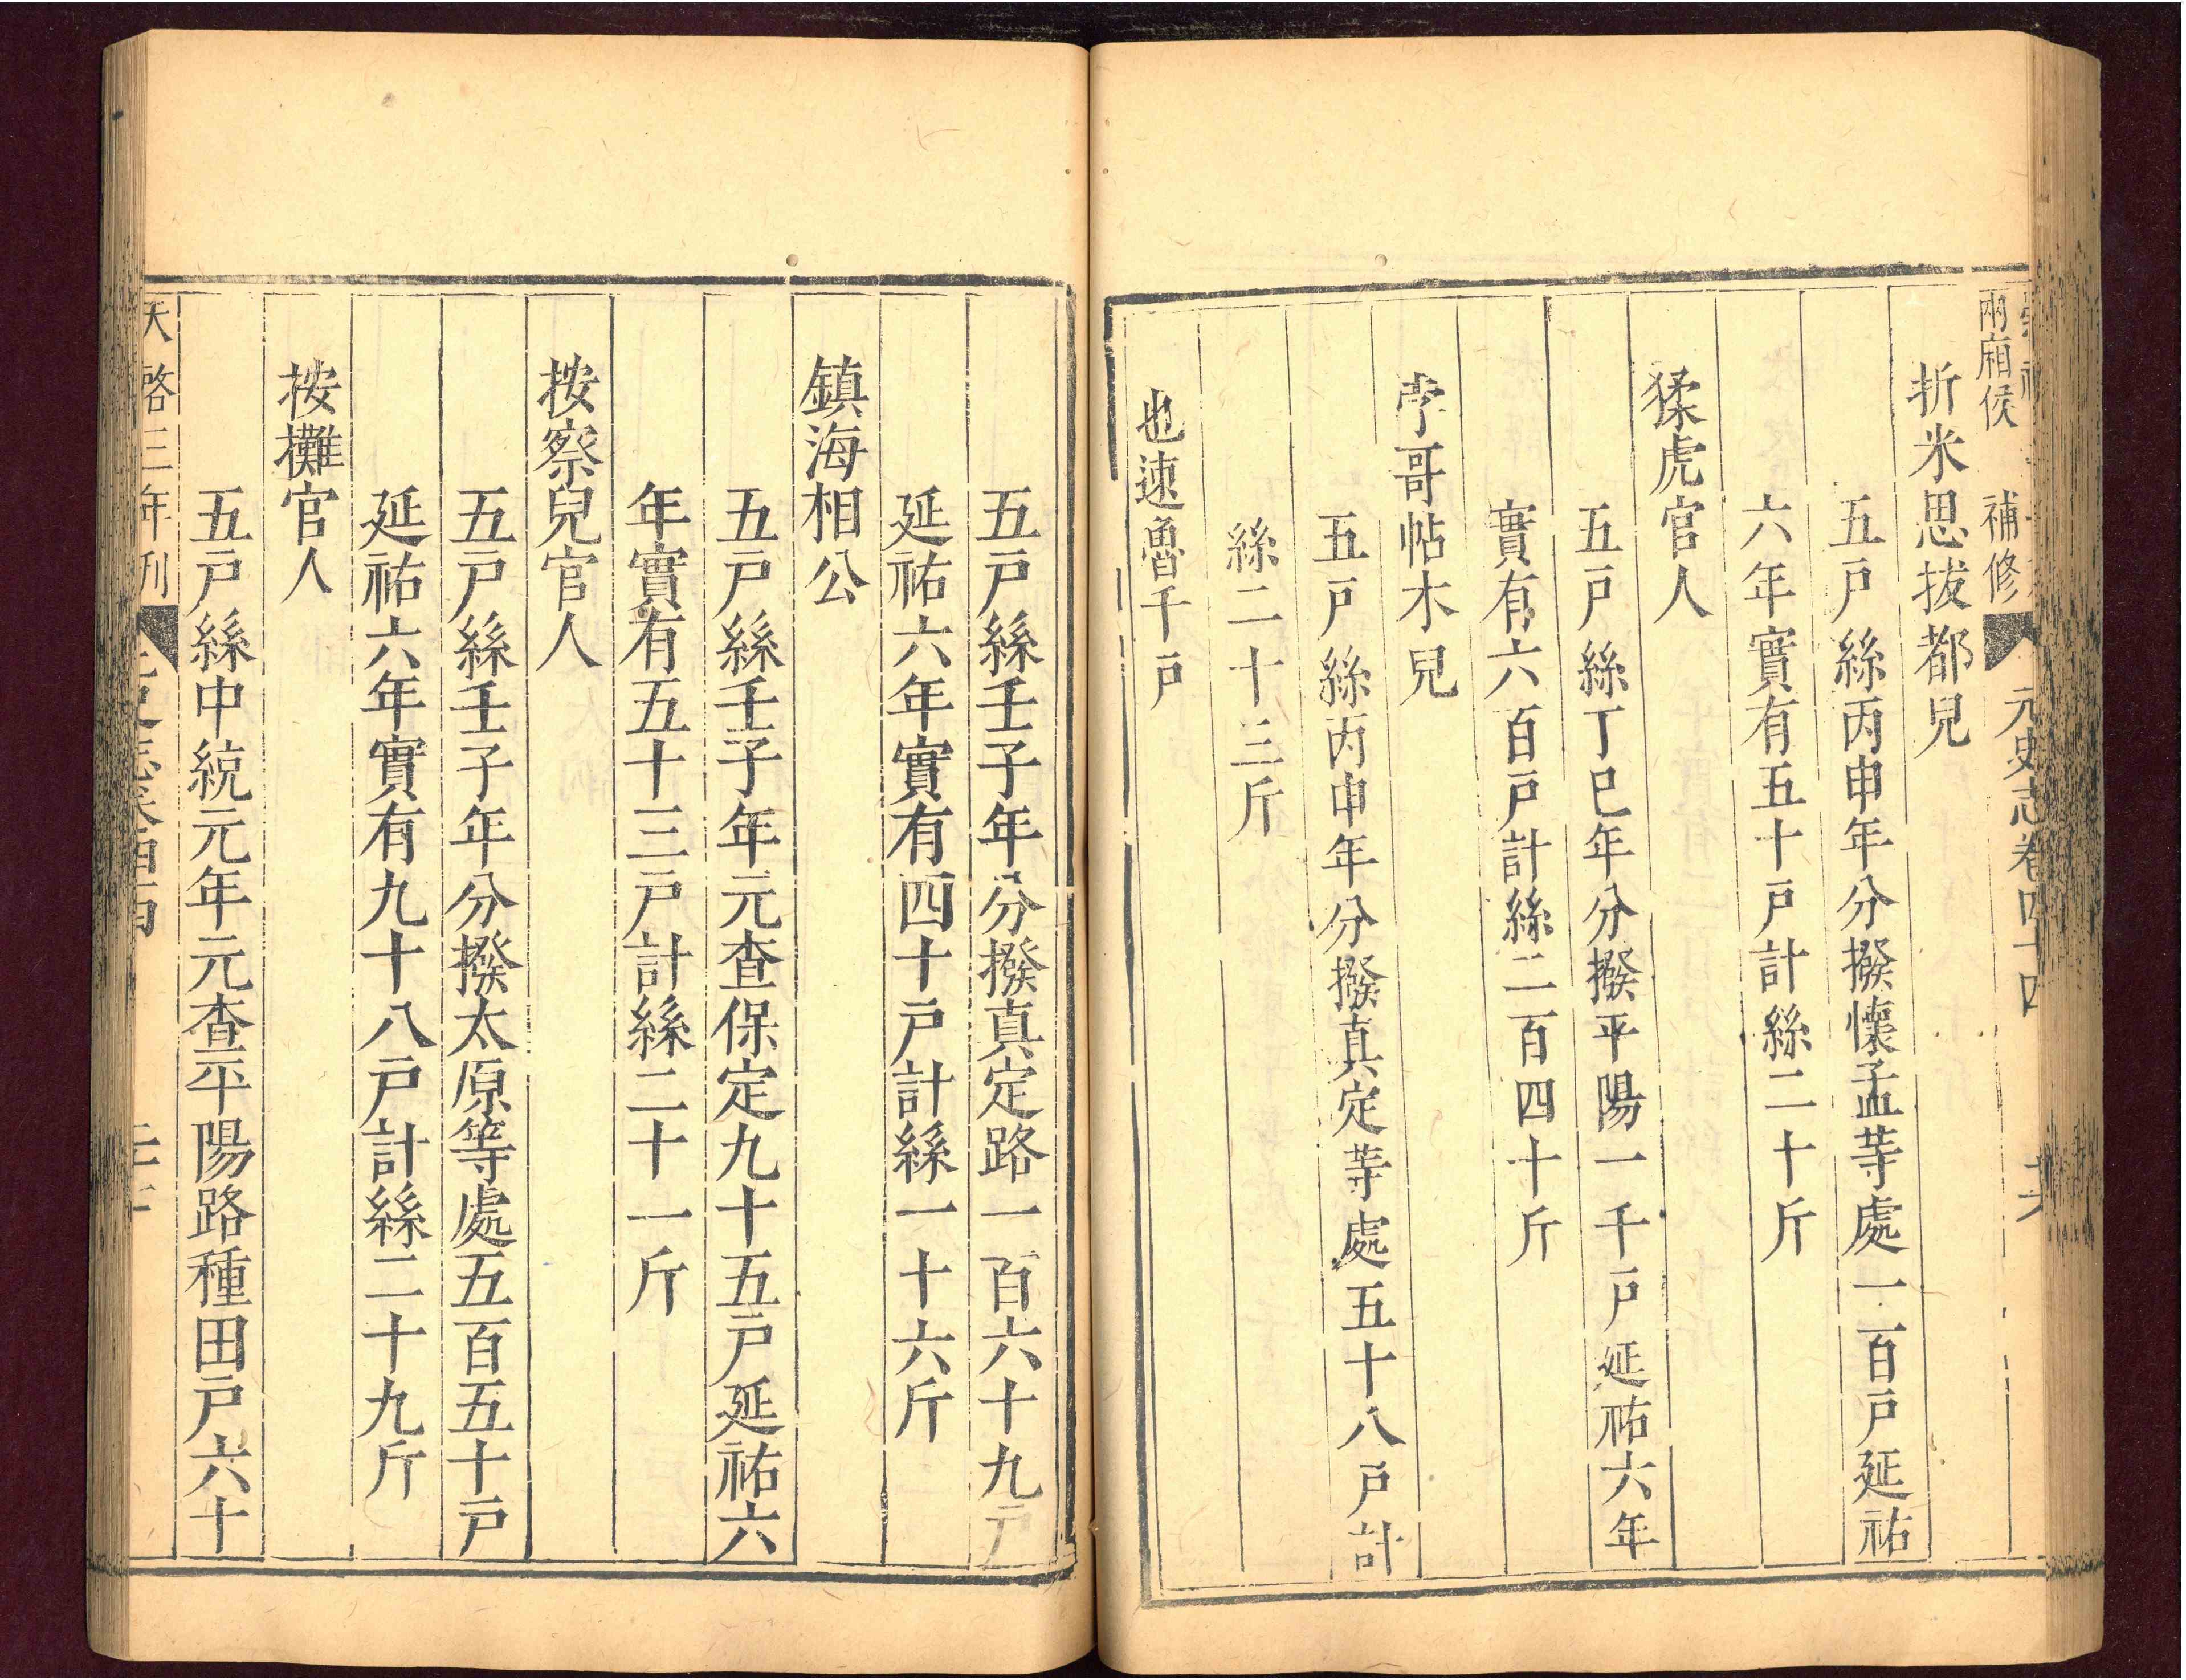 兩廂侯 補修
元史志卷四十四
折米思拔都兒
五戸絲丙申年分撥懷孟等處一百戸延祐
六年實有五十戸計絲二十斤
猱虎官人
五戸絲丁巳年分撥平陽一千戸延祐六年
實有六百戸計絲二百四十斤
孛哥帖木兒
五戸絲丙申年分撥真定等處五十八戸計
絲二十三斤
也速魯千戸
五戸絲壬子年分撥真定路一百六十九戸
延祐六年實有四十戸計絲一十六斤
鎮海相公
五戸絲壬子年元查保定九十五戸延祐六
年實有五十三戸計絲二十一斤
按察兒官人
五戸絲壬子年分撥太原等處五百五十戸
延祐六年實有九十八戸計絲二十九斤
按攤官人
五戸絲中統元年元查平陽路種田戸六十
天啓三年刊